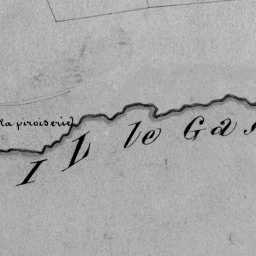 la piroiserie
IL le Ga